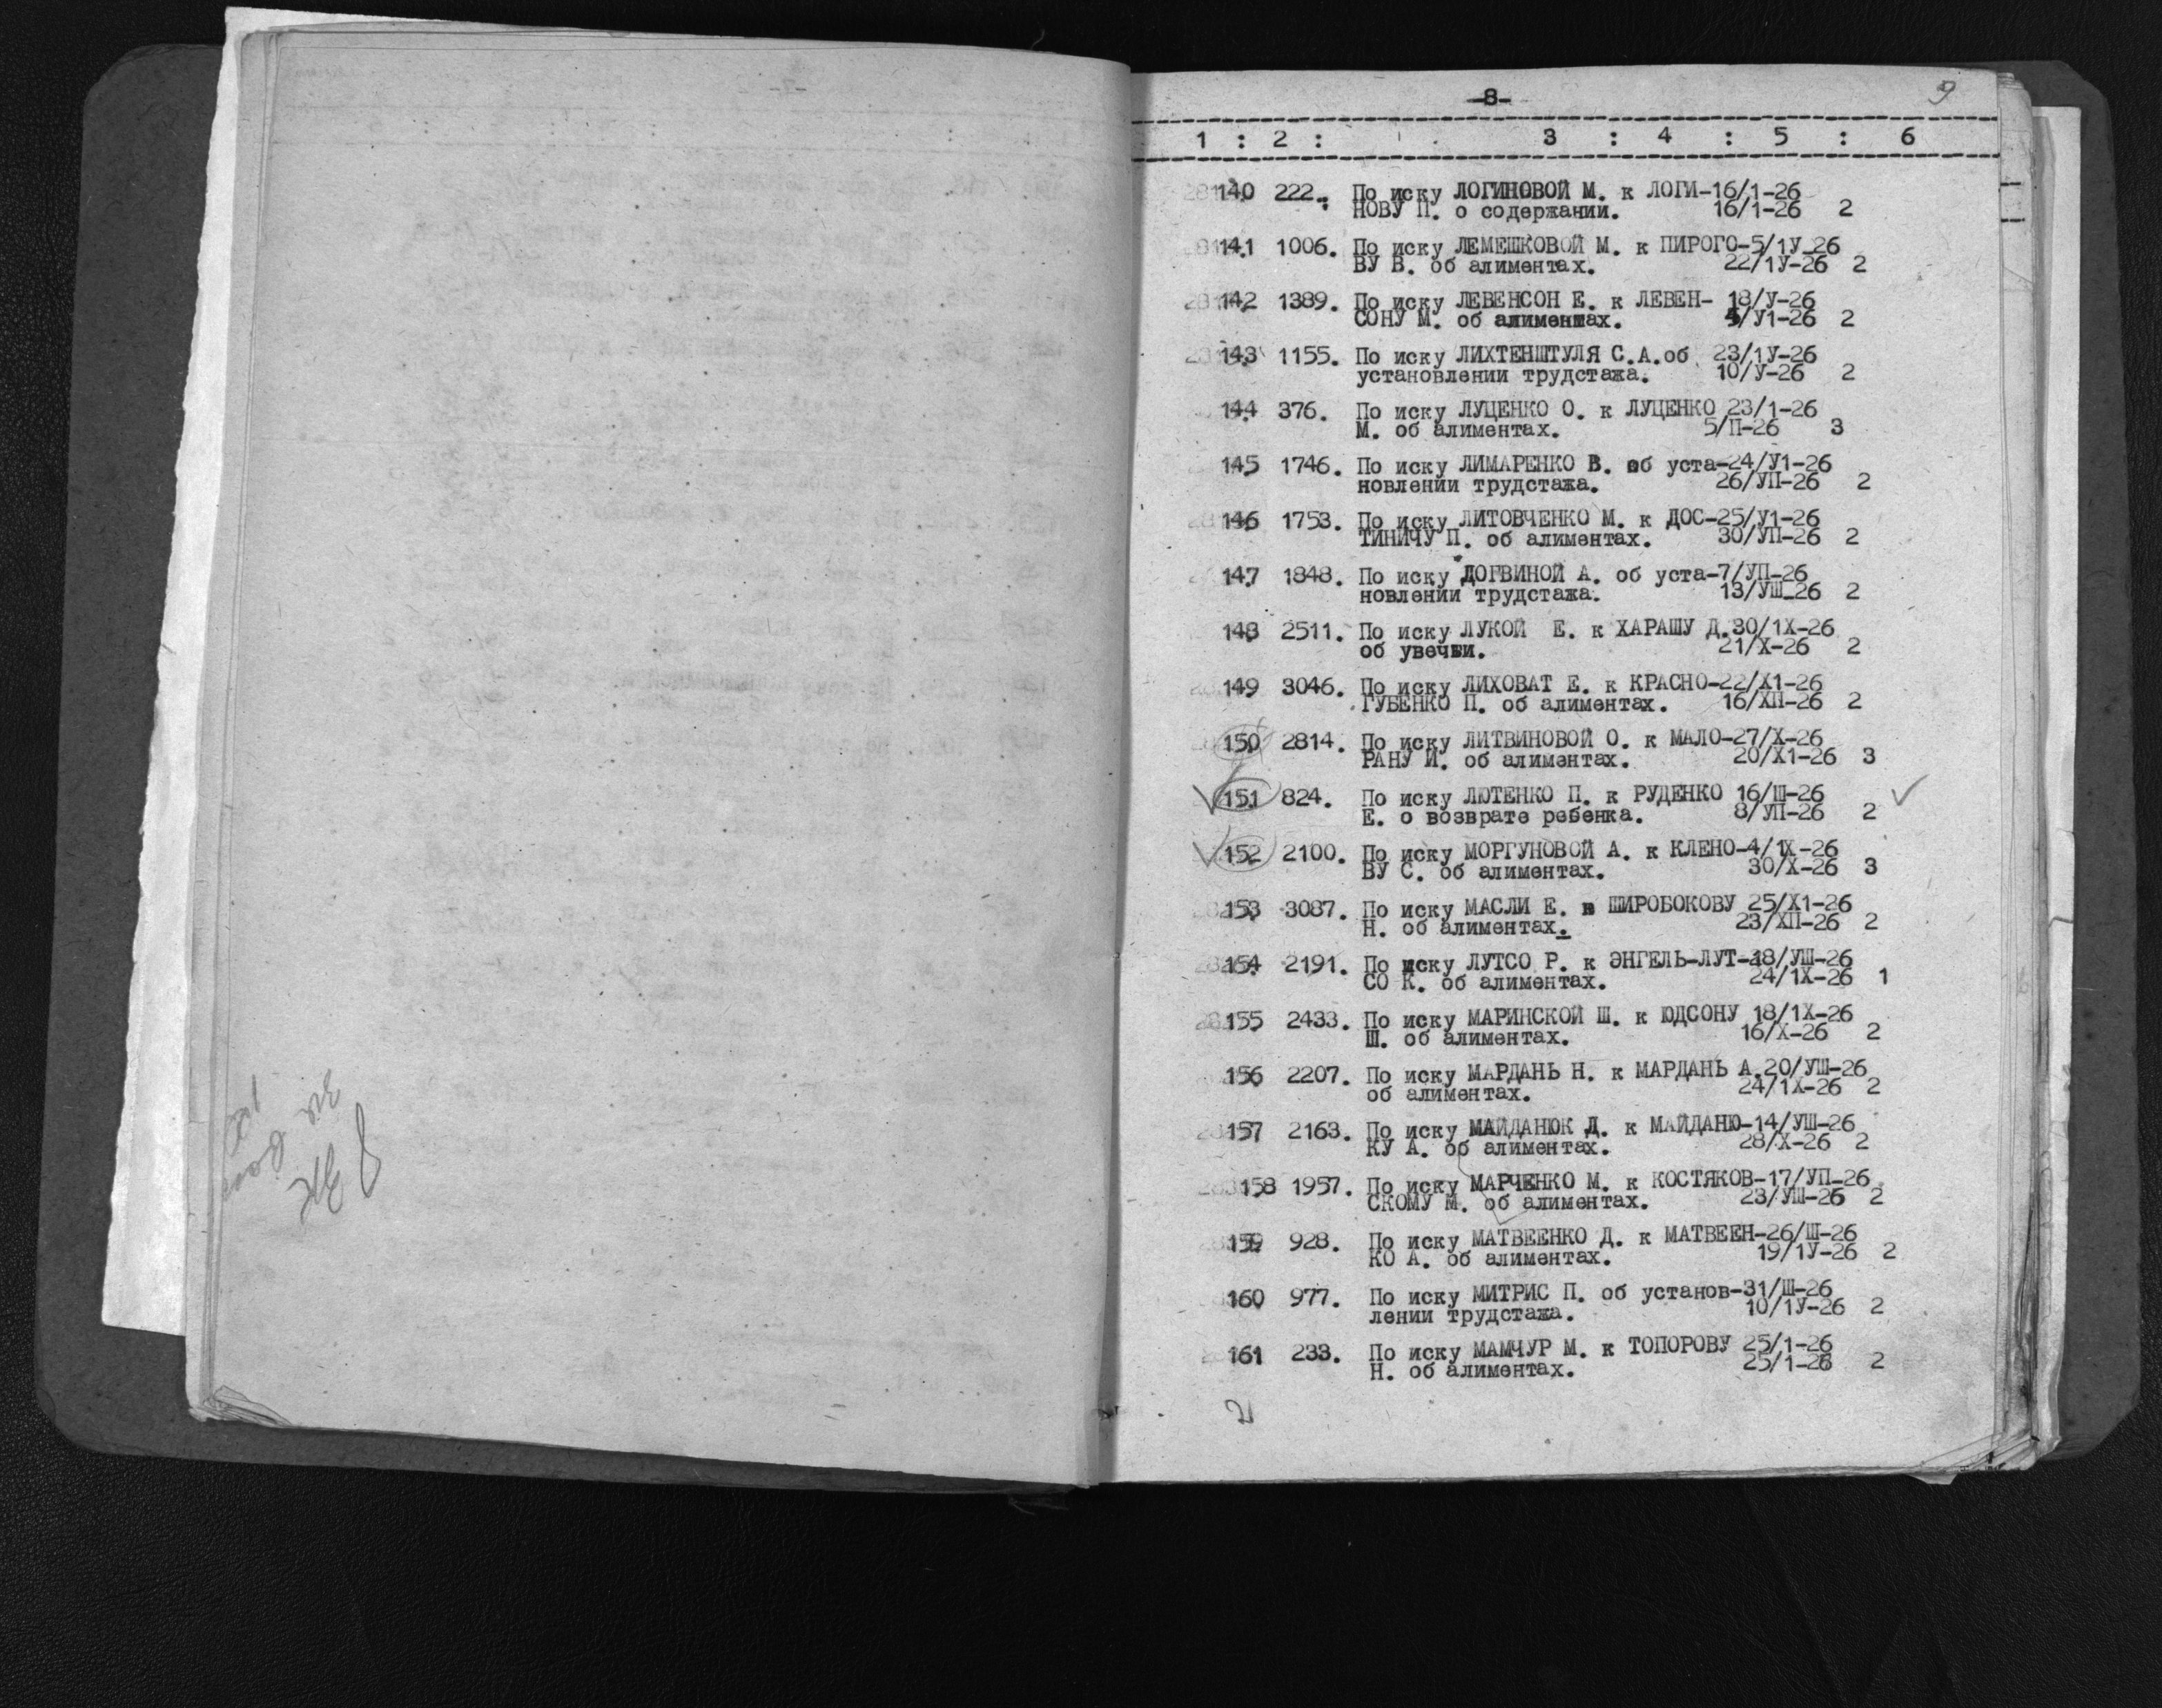 -8-
9
1 : 2 : 3 : 4 : 5 : 6
140 222. По иску ЛОГИНОВОЙ М. к ЛОГИ-16/1-26
НОВУ П. о содержании. 16/1-26 2
141 1006. По иску ЛЕМЕШКОВОЙ М. к ПИРОГО-5/1У-26
ВУ В. об алиментах. 22/1У-26 2
142 1389. По иску ЛЕВЕНСОН Е. к ЛЕВЕН- 18/У-26
СОНУ М. об алиментах. /У1-26 2
143 1155. По иску ЛИХТЕНШТУЛЯ С.А.об 23/1У-26
установлении трудстажа. 10/У-26 2
144 376. По иску ЛУЦЕНКО О. к ЛУЦЕНКО 23/1-26
М. об алиментах. 5/П-26 3
145 1746. По иску ЛИМАРЕНКО В. об уста-24/У1-26
новлении трудстажа. 26/УП-26 2
146 1753. По иску ЛИТОВЧЕНКО М. к ДОС-25/У1-26
ТИНИЧУ П. об алиментах. 30/УП-26 2
147 1848. По иску ДОГВИНОЙ А. об уста-7/УП-26
новлении трудстажа. 13/УШ-26 2
148 2511. По иску ЛУКОЙ Е. к ХАРАШУ Д.30/1Х-26
об увечьи. 21/Х-26 2
149 3046. По иску ЛИХОВАТ Е. к КРАСНО-22/Х1-26
ГУБЕНКО П. об алиментах. 16/ХП-26 2
150 2814. По иску ЛИТВИНОВОЙ О. к МАЛО-27/Х-26
РАНУ И. об алиментах. 20/Х1-26 3
151 824. По иску ЛЮТЕНКО П. к РУДЕНКО 16/Ш-26
Е. о возврате ребенка. 8/УП-26 2
152 2100. По иску МОРГУНОВОЙ А. к КЛЕНО-4/1Х-26
ВУ С. об алиментах. 30/Х-26 3
153 3087. По иску МАСЛИ Е. в ШИРОБОКОВУ 25/Х1-26
Н. об алиментах. 23/ХП-26 2
154 2191. По иску ЛУТСО Р. к ЭНГЕЛЬ-ЛУТ-18/УШ-26
СО К. об алиментах. 24/1Х-26 1
155 2433. По иску МАРИНСКОЙ Ш. к ЮДСОНУ 18/1Х-26
Ш. об алиментах. 16/Х-26 2
156 2207. По иску МАРДАНЬ Н. к МАРДАНЬ А.20/УШ-26
об алиментах. 24/1Х-26 2
157 2163. По иску МАЙДАНЮК Д. к МАЙДАНЮ-14/УШ-26
КУ А. об алиментах. 28/Х-26 2
158 1957. По иску МАРЧЕНКО М. к КОСТЯКОВ-17/УП-26
СКОМУ М. об алиментах. 23/УШ-26 2
159 928. По иску МАТВЕЕНКО Д. к МАТВЕЕН-26/Ш-26
КО А. об алиментах. 19/1У-26 2
160 977. По иску МИТРИС П. об установ-31/Ш-26
лении трудстажа. 10/1У-26 2
161 233. По иску МАМЧУР М. к ТОПОРОВУ 25/1-26
Н. об алиментах. 25/1-26 2